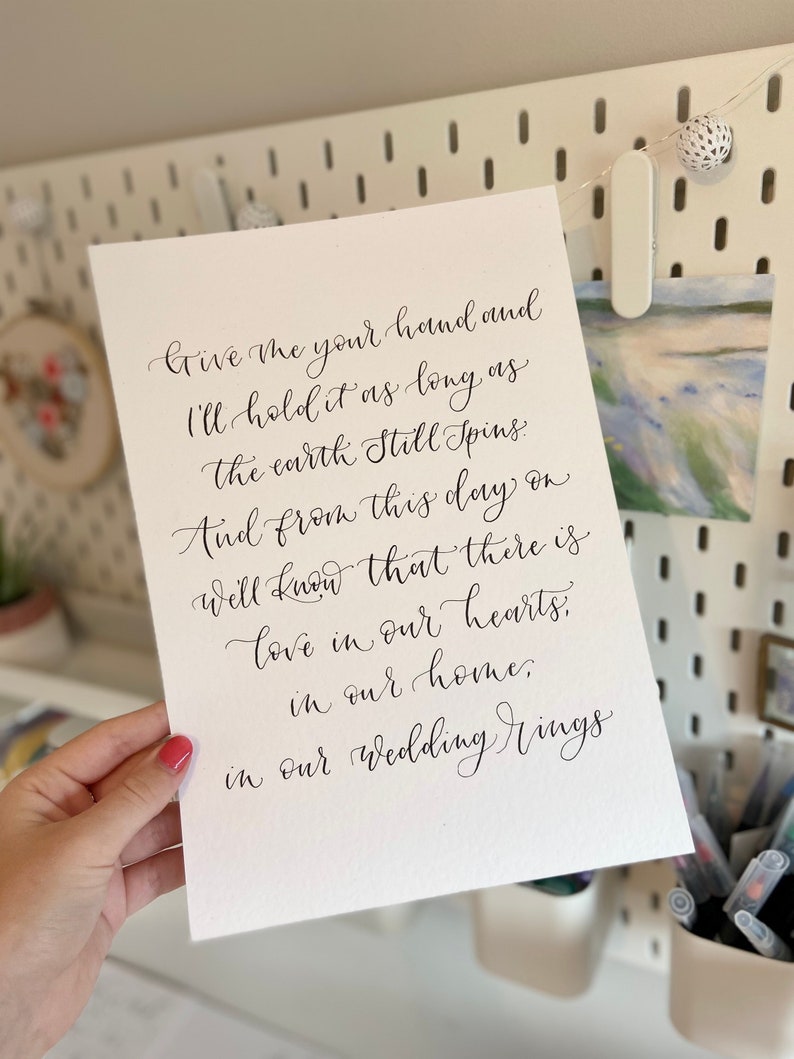 Give me your hand and
I'll hold it as long as
the earth still spins.
And from this day on
we'll know that there is
love in our hearts,
in our home,
in our wedding rings